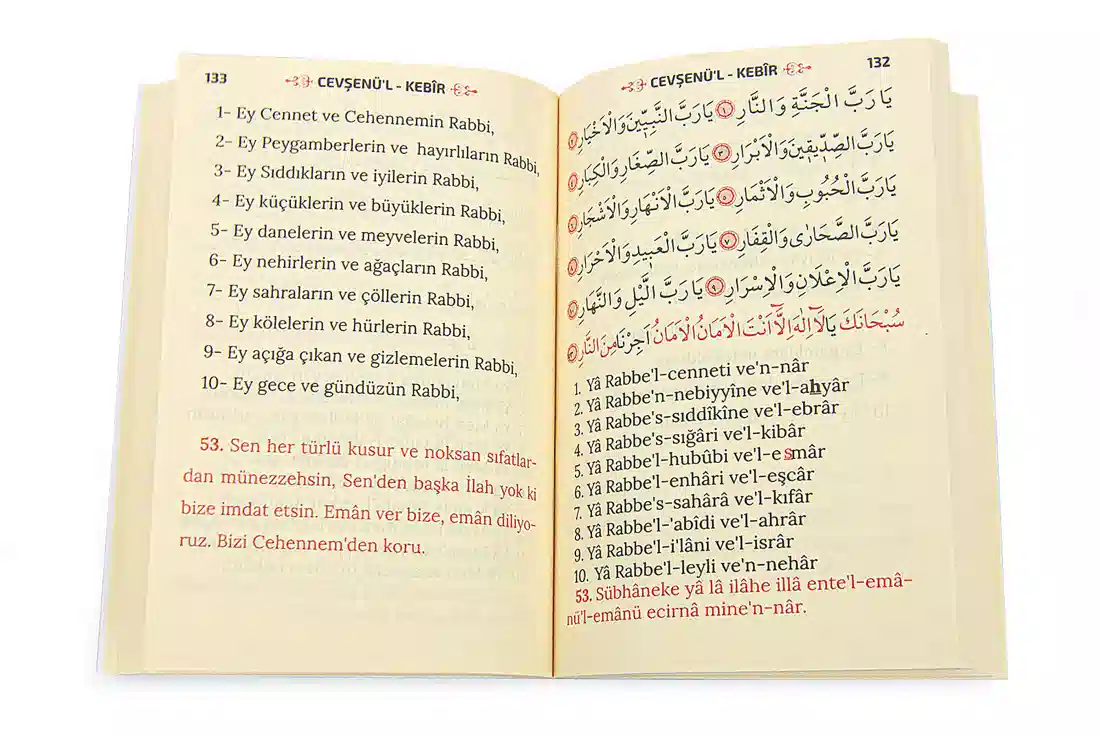 133
CEVŞENÜ'L - KEBÎR
1- Ey Cennet ve Cehennemin Rabbi,
2- Ey Peygamberlerin ve hayırlıların Rabbi,
3- Ey Sıddıkların ve iyilerin Rabbi,
4- Ey küçüklerin ve büyüklerin Rabbi,
5- Ey danelerin ve meyvelerin Rabbi,
6- Ey nehirlerin ve ağaçların Rabbi,
7- Ey sahraların ve çöllerin Rabbi,
8- Ey kölelerin ve hürlerin Rabbi,
9- Ey açığa çıkan ve gizlemelerin Rabbi,
10- Ey gece ve gündüzün Rabbi,
53. Sen her türlü kusur ve noksan sıfatlar-
dan münezzehsin, Sen'den başka İlah yok ki
bize imdat etsin. Emân ver bize, emân diliyo-
ruz. Bizi Cehennem'den koru.
CEVŞENÜ'L - KEBÎR
132
يَا رَبَّ الْجَنَّةِ وَالنَّارِ ١ يَا رَبَّ النَّبِيّ۪ينَ وَالْاَخْيَارِ ٢
يَارَبَّ الصِّدّ۪يق۪ينَ وَالْاَبْرَارِ ٣ يَارَبَّ الصِّغَارِ وَالْكِبَارِ ٤
يَارَبَّ الْحُبُوبِ وَالْاَثْمَارِ ٥ يَارَبَّ الْاَنْهَارِ وَالْاَشْجَارِ ٦
يَارَبَّ الصَّحَارٰى وَالْقِفَارِ ٧ يَارَبَّ الْعَب۪يدِ وَالْاَحْرَارِ ٨
يَارَبَّ الْاِعْلَانِ وَالْاِسْرَارِ ٩ يَا رَبَّ الَّيْلِ وَالنَّهَارِ ١٠
سُبْحَانَكَ يَالَٓا اِلٰهَ اِلَّٓا اَنْتَ الْاَمَانُ الْاَمَانُ اَجِرْنَا مِنَ النَّارِ
1. Yâ Rabbe'l-cenneti ve'n-nâr
2. Yâ Rabbe'n-nebiyyîne ve'l-ahyâr
3. Yâ Rabbe's-sıddîkîne ve'l-ebrâr
4. Yâ Rabbe's-sığâri ve'l-kibâr
5. Yâ Rabbe'l-hubûbi ve'l-esmâr
6. Yâ Rabbe'l-enhâri ve'l-eşcâr
7. Yâ Rabbe's-sahârâ ve'l-kıfâr
8. Yâ Rabbe'l-'abîdi ve'l-ahrâr
9. Yâ Rabbe'l-i'lâni ve'l-isrâr
10. Yâ Rabbe'l-leyli ve'n-nehâr
53. Sübhâneke yâ lâ ilâhe illâ ente'l-emâ-
nü'l-emânü ecirnâ mine'n-nâr.